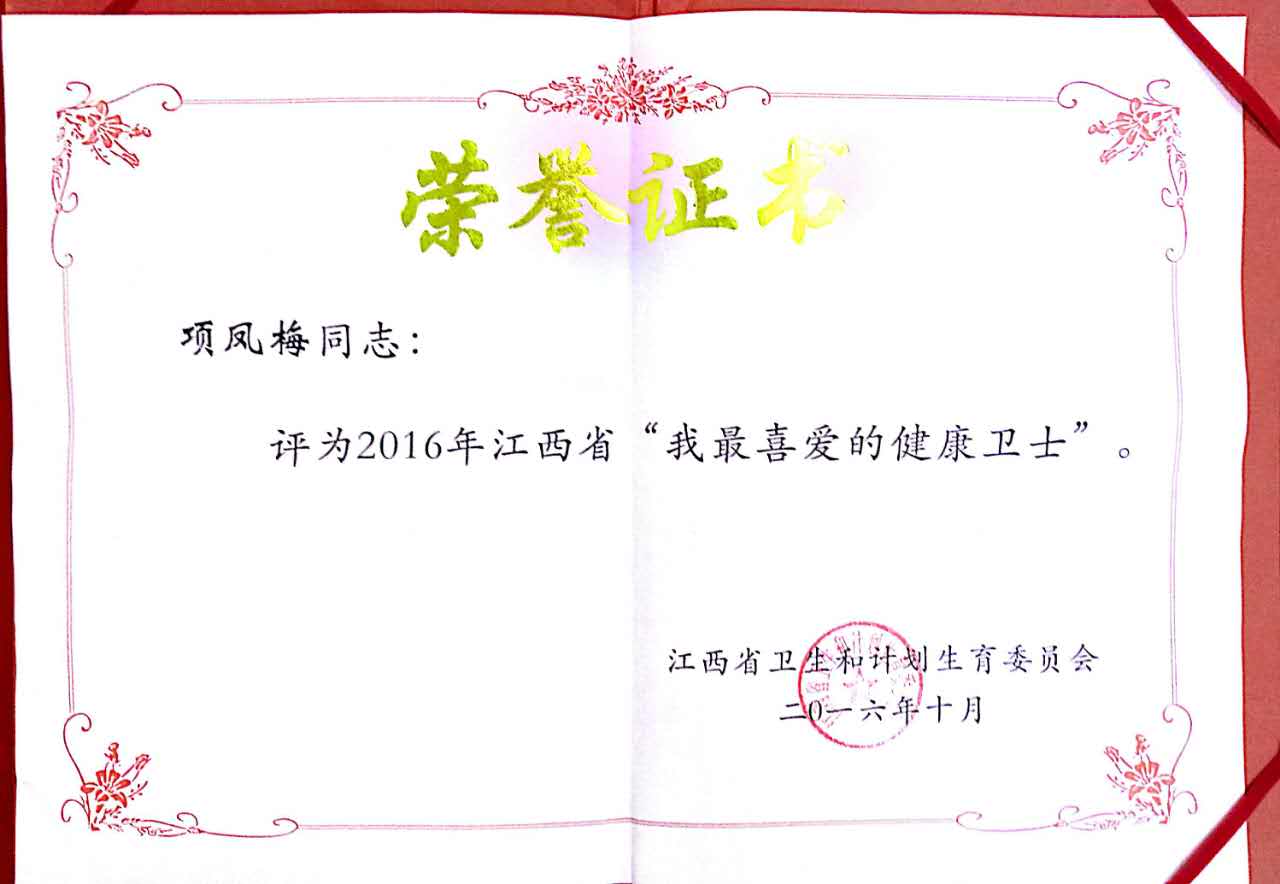 荣誉证书
项凤梅同志：
评为2016年江西省“我最喜爱的健康卫士”。
江西省卫生和计划生育委员会
二0一六年十月